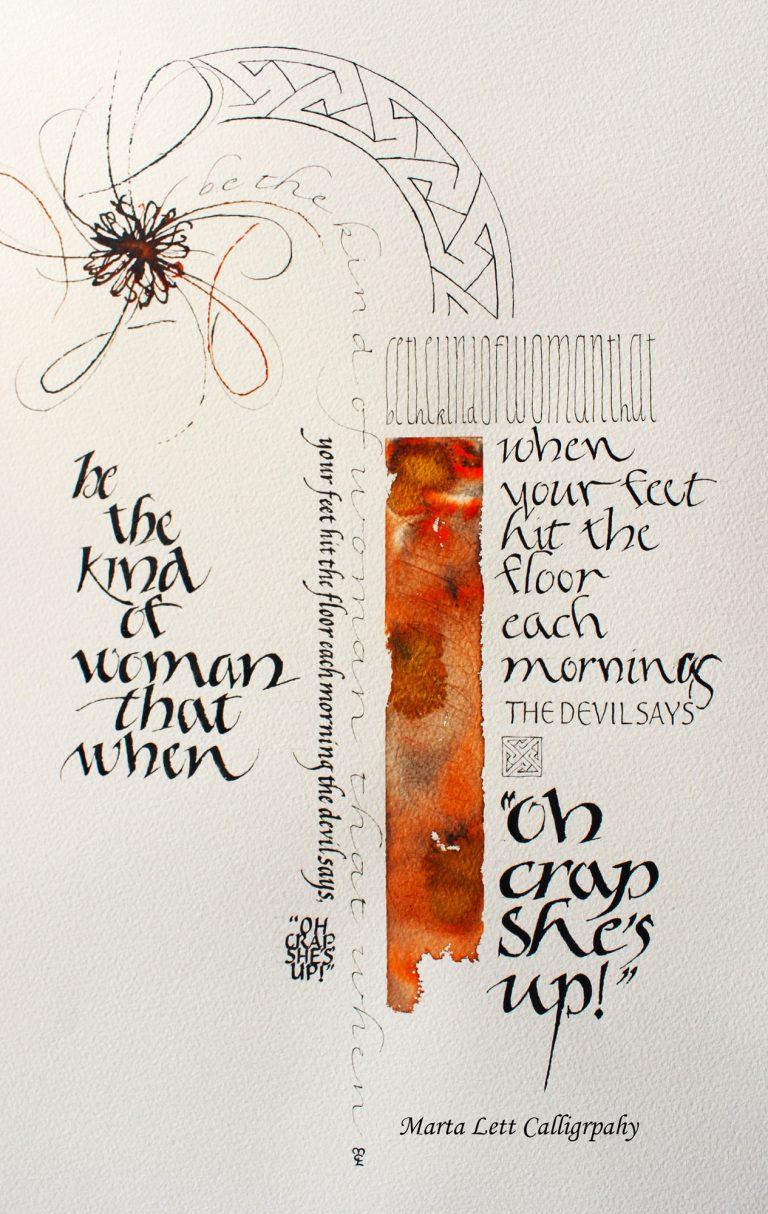 be the kind of woman that when
bethekindofwomanthat
be the kind that
be
the
kind
of
woman
that
when
your feet hit the floor each morning the devil says,
"OH
CRAP
SHE'S
UP!"
when
your feet
hit the
floor
each
morning
THE DEVIL SAYS
"Oh
crap
She's
up!"
Marta Lett Calligrpahy